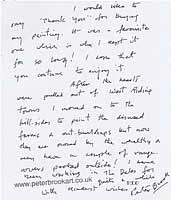 I would like to
say "Thank You" for buying
my painting. It was a favourite
one which is why I kept it
for so long! I hope that
you continue to enjoy it.
After the
were pulled out of West Riding
towns I moved on to the
hill-sides to paint the disused
farms & out-buildings but now
they are owned by the wealthy &
may have a couple of
parked outside! I
been working in the Dales for
www.peterbrookart.co.uk
quite a while
With kindest wishes Peter Brook